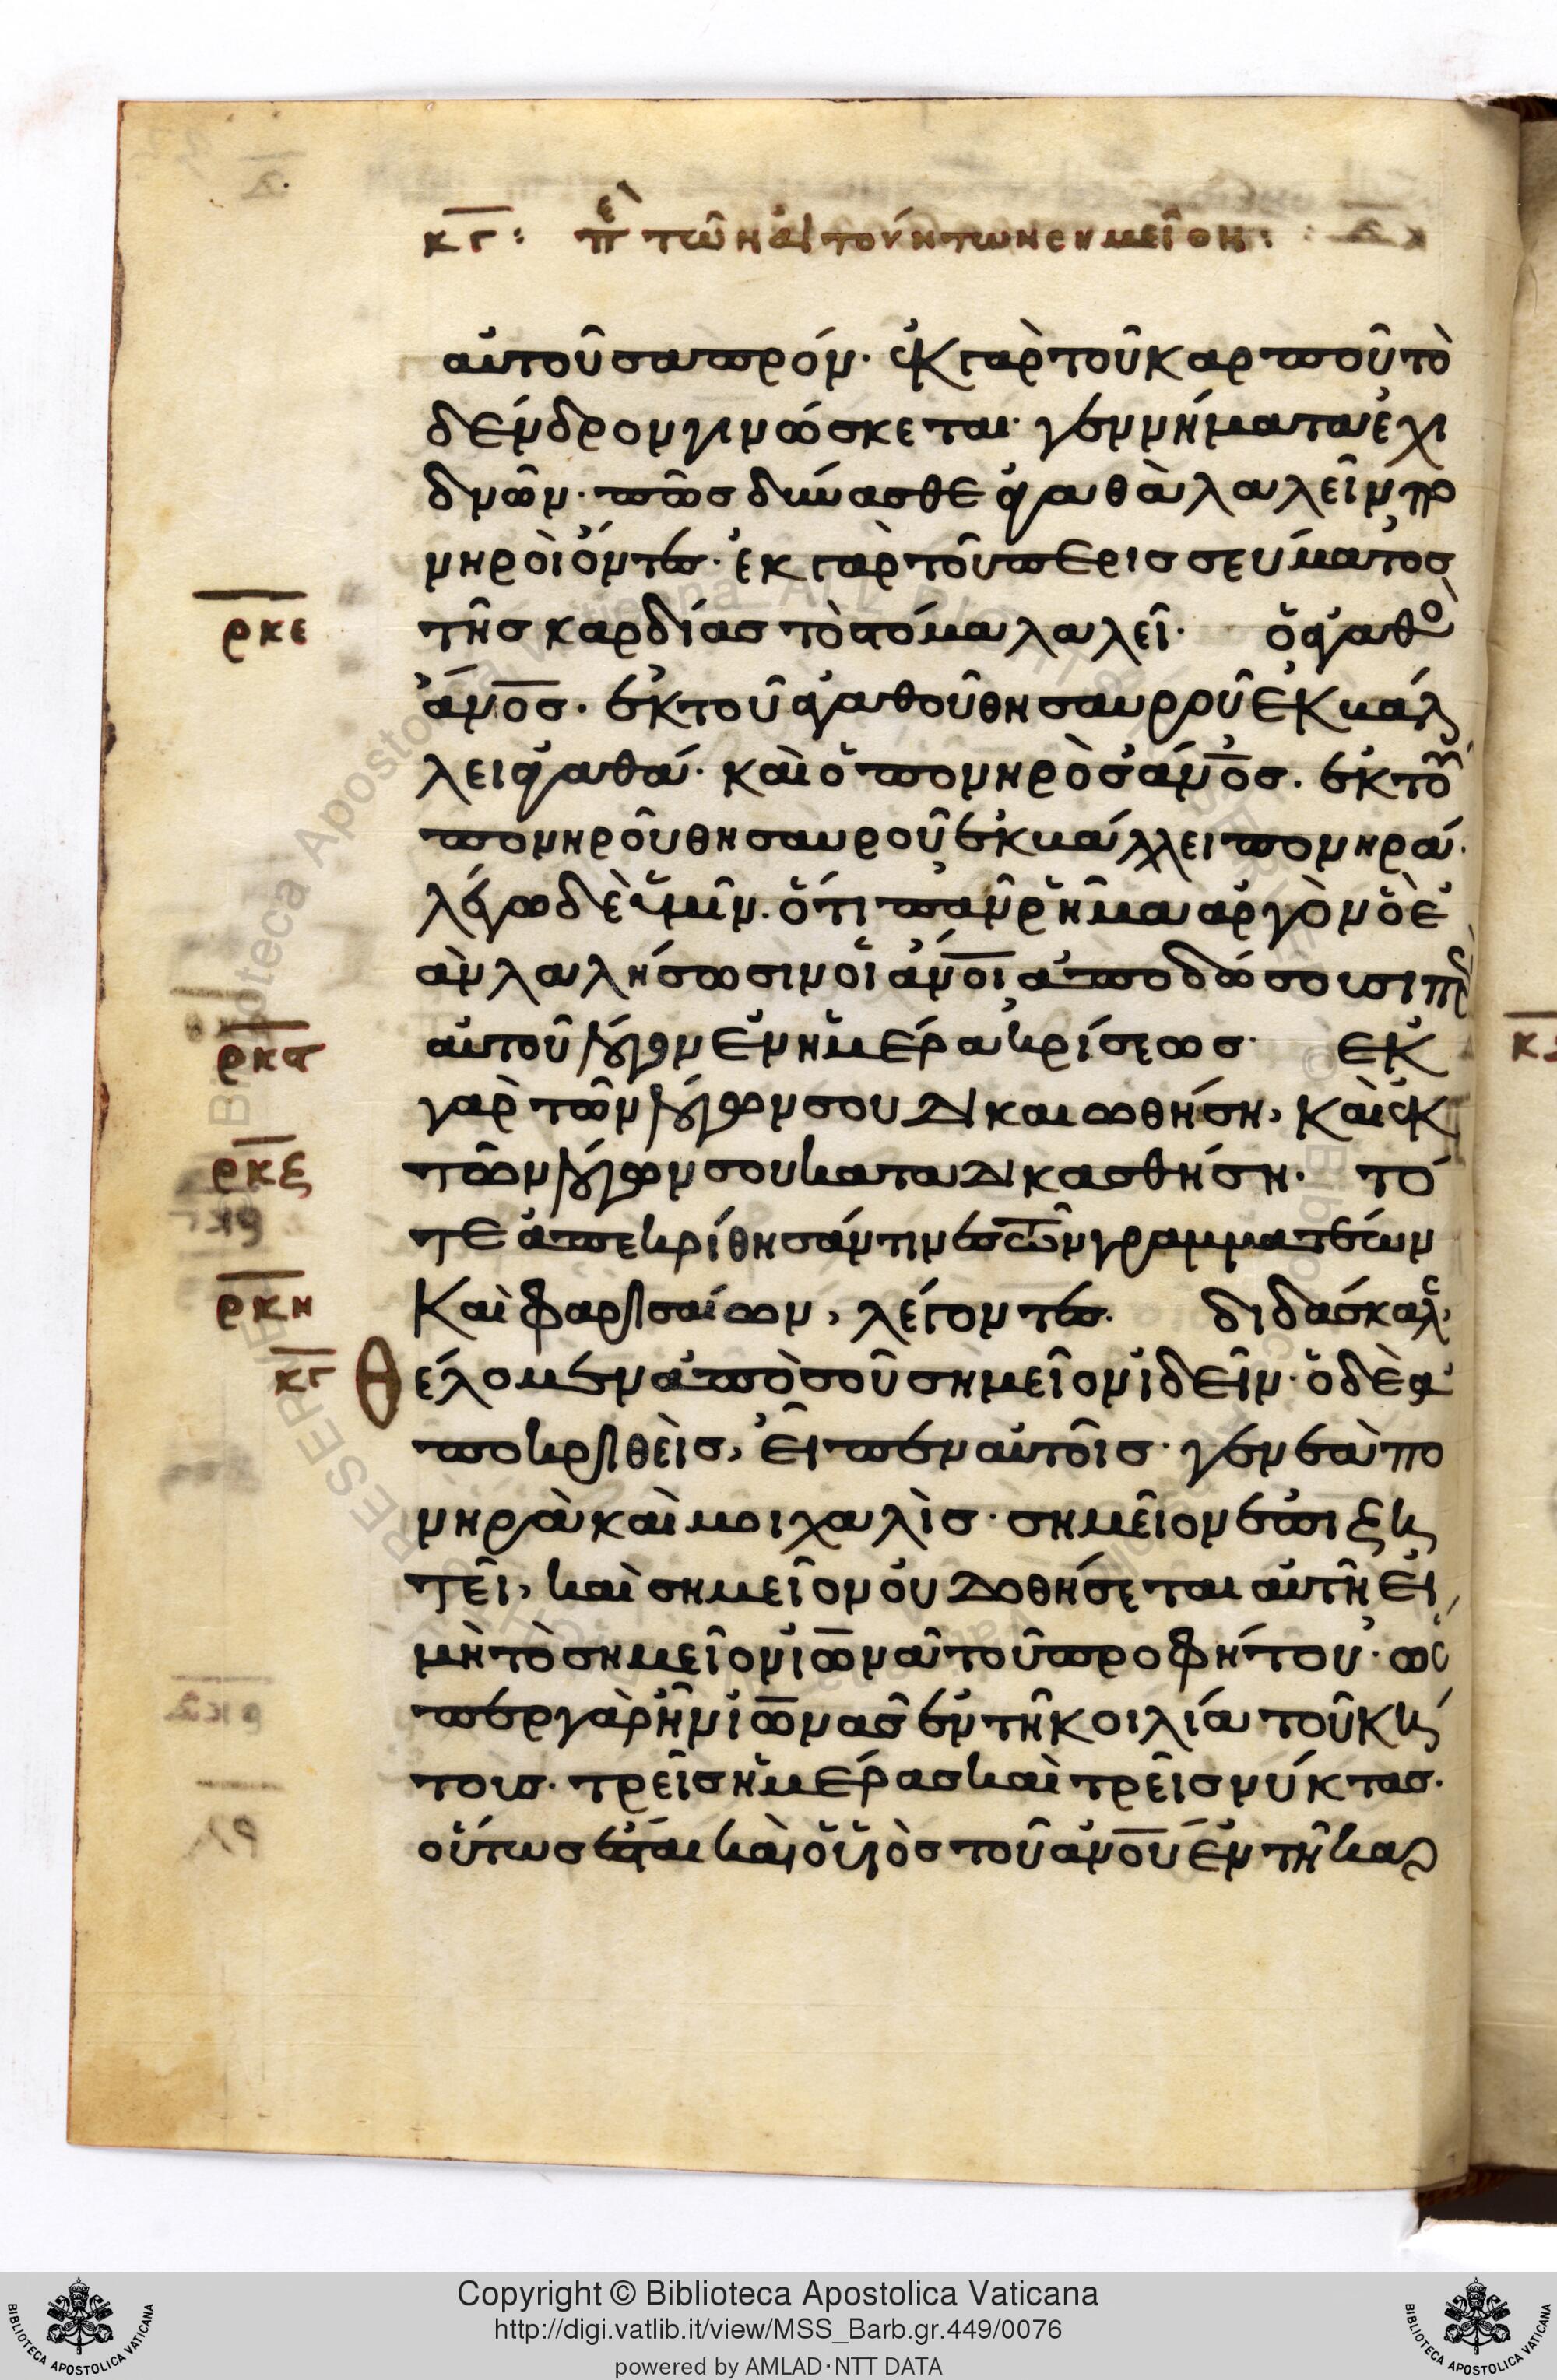 κγ: πε τῶν αἰτούντων σημεῖον:
αὐτοῦ σαπρόν· ἐκ γὰρ τοῦ καρποῦ τὸ
δένδρον γινώσκεται· γεννήματα ἐχι
δνῶν· πῶς δύνασθε ἀγαθὰ λαλεῖν πο
νηροὶ ὄντες· ἐκ γὰρ τοῦ περισσεύματος
ρκε
τῆς καρδίας τὸ στόμα λαλεῖ· ὁ ἀγαθὸ
ἄνος· ἐκ τοῦ ἀγαθοῦ θησαυροῦ ἐκβάλ
λει ἀγαθά· καὶ ὁ πονηρὸς ἄνος· ἐκ τοῦ
πονηροῦ θησαυροῦ ἐκβάλλει πονηρά·
λέγω δὲ ὑμῖν· ὅτι πᾶν ῥῆμα ἀργὸν ὃ ἐ
ὰν λαλήσωσιν οἱ ἄνοι ἀποδώσουσι πε
ρκς
αὐτοῦ λόγον ἐν ἡμέρα κρίσεως· ἐκ
γὰρ τῶν λόγων σου δικαιωθήση, καὶ ἐκ
ρκζ
τῶν λόγων σου καταδικασθήση· τό
τε ἀπεκρίθησάν τινες τῶν γραμματέων
ρκη
καὶ φαρισαίων, λέγοντες· διδάσκαλε
κγ
Θέλομεν ἀπὸ σοῦ σημεῖον ἰδεῖν· ὁ δὲ ἀ
ποκριθεὶς, εἶπεν αὐτοῖς· γενεὰ πο
νηρὰ καὶ μοιχαλὶς· σημεῖον ἐπιζη
τεῖ, καὶ σημεῖον οὐ δοθήσεται αὐτῆ εἰ
μὴ τὸ σημεῖον ἰωνᾶ τοῦ προφήτου· ὥσ
περ γὰρ ἦν ἰωνᾶς ἐν τῆ κοιλία τοῦ κή
τους· τρεῖς ἡμέρας καὶ τρεῖς νύκτας·
οὕτως ἔσται καὶ ὁ υἱὸς τοῦ ἀνου ἐν τῆ καρ
Copyright © Biblioteca Apostolica Vaticana
http://digi.vatlib.it/view/MSS_Barb.gr.449/0076
powered by AMLAD·NTT DATA
BIBLIOTECA APOSTOLICA VATICANA
BIBLIOTECA APOSTOLICA VATICANA